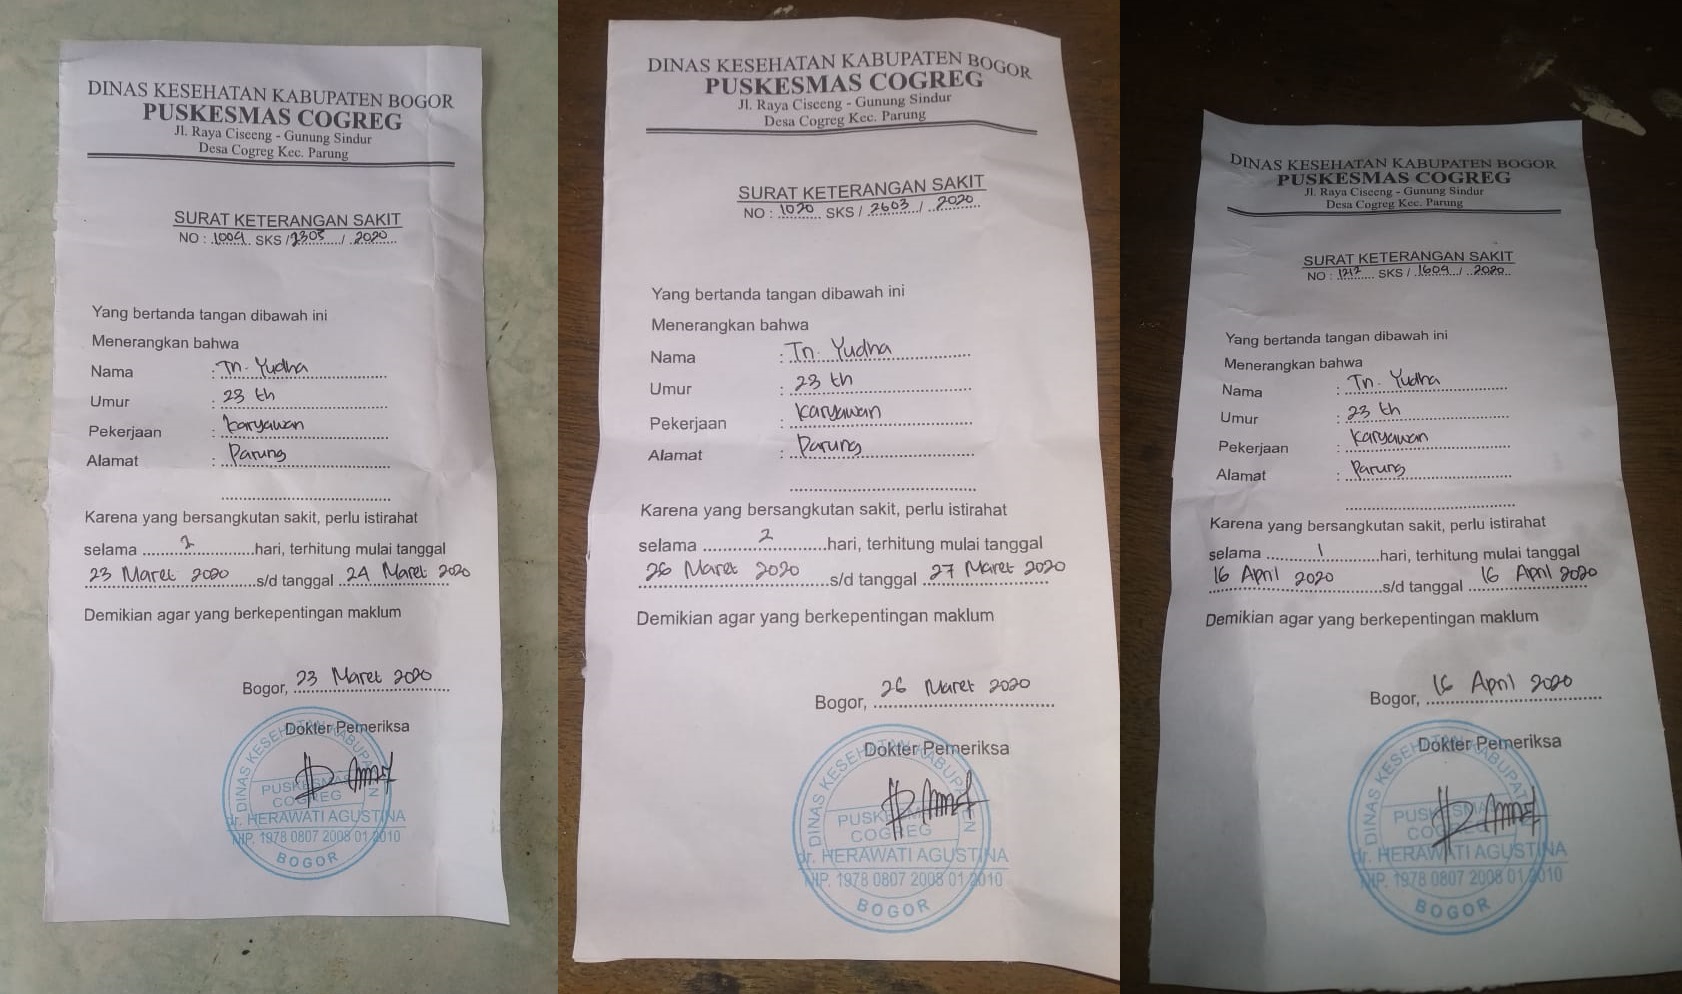 DINAS KESEHATAN KABUPATEN BOGOR
PUSKESMAS COGREG
Jl. Raya Ciseeng - Gunung Sindur
Desa Cogreg Kec. Parung
SURAT KETERANGAN SAKIT
NO : 1004 SKS / 2303 / 2020
Yang bertanda tangan dibawah ini
Menerangkan bahwa
Nama : Tn. Yudha
Umur : 23 th
Pekerjaan : karyawan
Alamat : Parung
Karena yang bersangkutan sakit, perlu istirahat
selama 2 hari, terhitung mulai tanggal
23 Maret 2020 s/d tanggal 24 Maret 2020
Demikian agar yang berkepentingan maklum
Bogor, 23 Maret 2020
Dokter Pemeriksa
DINAS KESEHATAN KABUPATEN
PUSKESMAS
COGREG
dr. HERAWATI AGUSTINA
NIP. 1978 0807 2008 01 2010
BOGOR
DINAS KESEHATAN KABUPATEN BOGOR
PUSKESMAS COGREG
Jl. Raya Ciseeng - Gunung Sindur
Desa Cogreg Kec. Parung
SURAT KETERANGAN SAKIT
NO : 1020 SKS / 2603 / 2020
Yang bertanda tangan dibawah ini
Menerangkan bahwa
Nama : Tn. Yudha
Umur : 23 th
Pekerjaan : karyawan
Alamat : Parung
Karena yang bersangkutan sakit, perlu istirahat
selama 2 hari, terhitung mulai tanggal
26 Maret 2020 s/d tanggal 27 Maret 2020
Demikian agar yang berkepentingan maklum
Bogor, 26 Maret 2020
Dokter Pemeriksa
DINAS KESEHATAN KABUPATEN
PUSKESMAS
COGREG
dr. HERAWATI AGUSTINA
NIP. 1978 0807 2008 01 2010
BOGOR
DINAS KESEHATAN KABUPATEN BOGOR
PUSKESMAS COGREG
Jl. Raya Ciseeng - Gunung Sindur
Desa Cogreg Kec. Parung
SURAT KETERANGAN SAKIT
NO : 1212 SKS / 1604 / 2020
Yang bertanda tangan dibawah ini
Menerangkan bahwa
Nama : Tn. Yudha
Umur : 23 th
Pekerjaan : karyawan
Alamat : Parung
Karena yang bersangkutan sakit, perlu istirahat
selama 1 hari, terhitung mulai tanggal
16 April 2020 s/d tanggal 16 April 2020
Demikian agar yang berkepentingan maklum
Bogor, 16 April 2020
Dokter Pemeriksa
DINAS KESEHATAN KABUPATEN
PUSKESMAS
COGREG
dr. HERAWATI AGUSTINA
NIP. 1978 0807 2008 01 2010
BOGOR